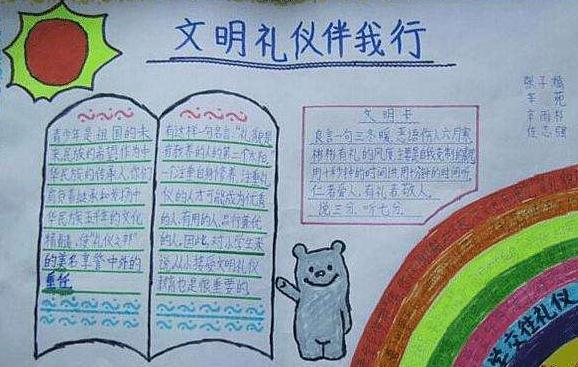 文明礼仪伴我行
青少年是祖国的未
来民族的希望。作为中
华民族的传承人,你们
肩负着继承和发扬中
华民族五千年的文化
精髓,使“礼仪之邦”
的著名享誉中外的
重任
有这样一句名言“礼貌是
有教养的人的第二个太阳。
一个注重自身修养,注重礼
仪的人才可能成为优秀
的人,有用的人,品行兼优
的人。因此,对小学生来
说,从小接受文明礼仪
教育也是很重要的
文明卡
良言一句三冬暖,恶语伤人六月寒
彬彬有礼的风度,主要是自我克制的表现
用十秒钟的时间讲,用十分钟的时间听。
仁者爱人,有礼者敬人。
说三分,听七分。
学交往礼仪